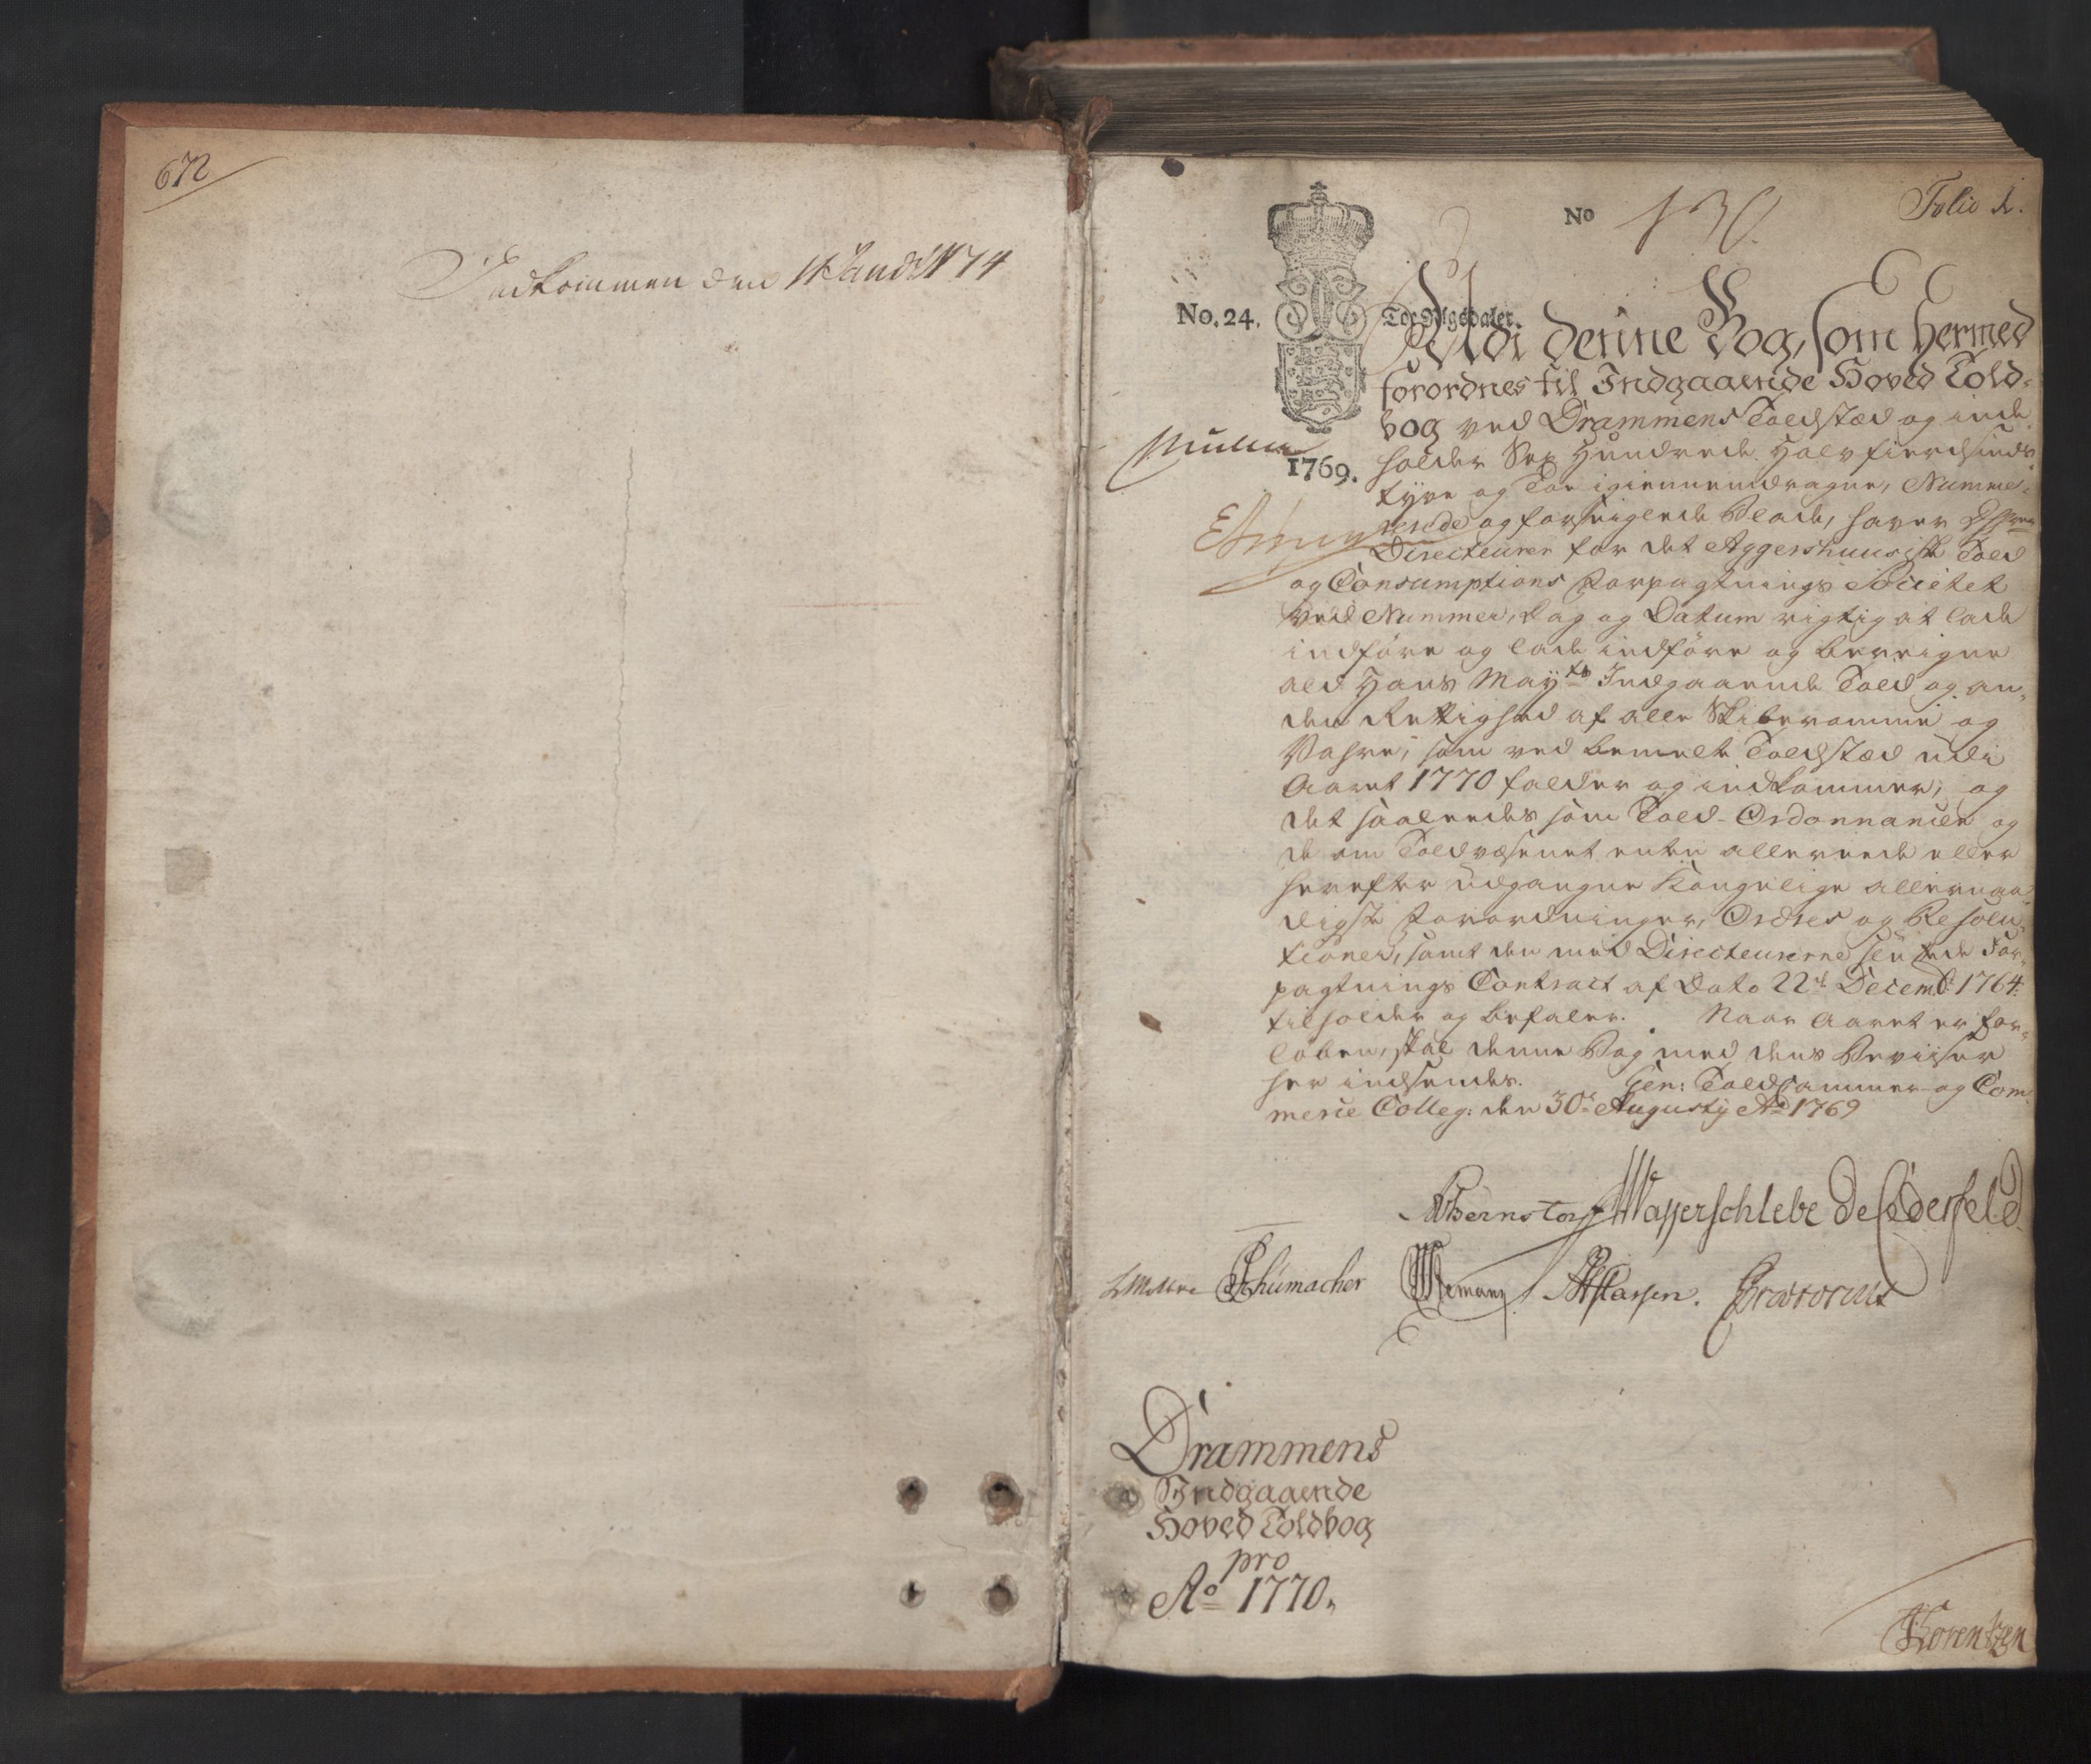 672
Indkommen den 14 Jan 1774
No 130.
Folio 1.
No. 24.
Toe Rigsdaler.
1769.
Müller
Udi denne Bog, som hermed
forordnes til Indgaaende Hoved Told-
bog ved Drammens Toldstæd og inde
holder Sex Hundrede Halvfierdsinds
tyve og Toe igiennemdragne, Numme-
rerede og forseiglede Blade, haver
Directeurer for det Aggershuusiske Told
og Consumptions Forpagtnings Societet
ved Nummer, Dag og Datum rigtig at lade
indföre og lade indföre og bereigne
ald Hans Mayts Indgaaende Told og an-
den Rettighed af alle Skiberomme og
Vahre, som ved bemelte Toldstæd udi
Aaret 1770 falder og indkommer, og
det saaledes som Told-Ordonnancen og
de om Toldvæsenet enten allereede eller
herefter udgangne Kongelige allernaa-
digste Forordninger, Ordres og Resolu-
tioner, samt den med Directeurerne sluttede For-
pagtnings Contract af Dato 22d Decembr: 1764
tilholder og befaler. Naar Aaret er for-
löben, skal denne Bog med dens Beviiser
her indsendes. Gen: Toldkammer og Com-
merce Colleg: den 30te Augustij Ao 1769
Bernstorff Wasserschlebe de Cederfeld
Schumacher Klemann Classen. Prætorius
Drammens
Indgaaende
Hoved Toldbog
pro
Ao 1770.
Lorentzen